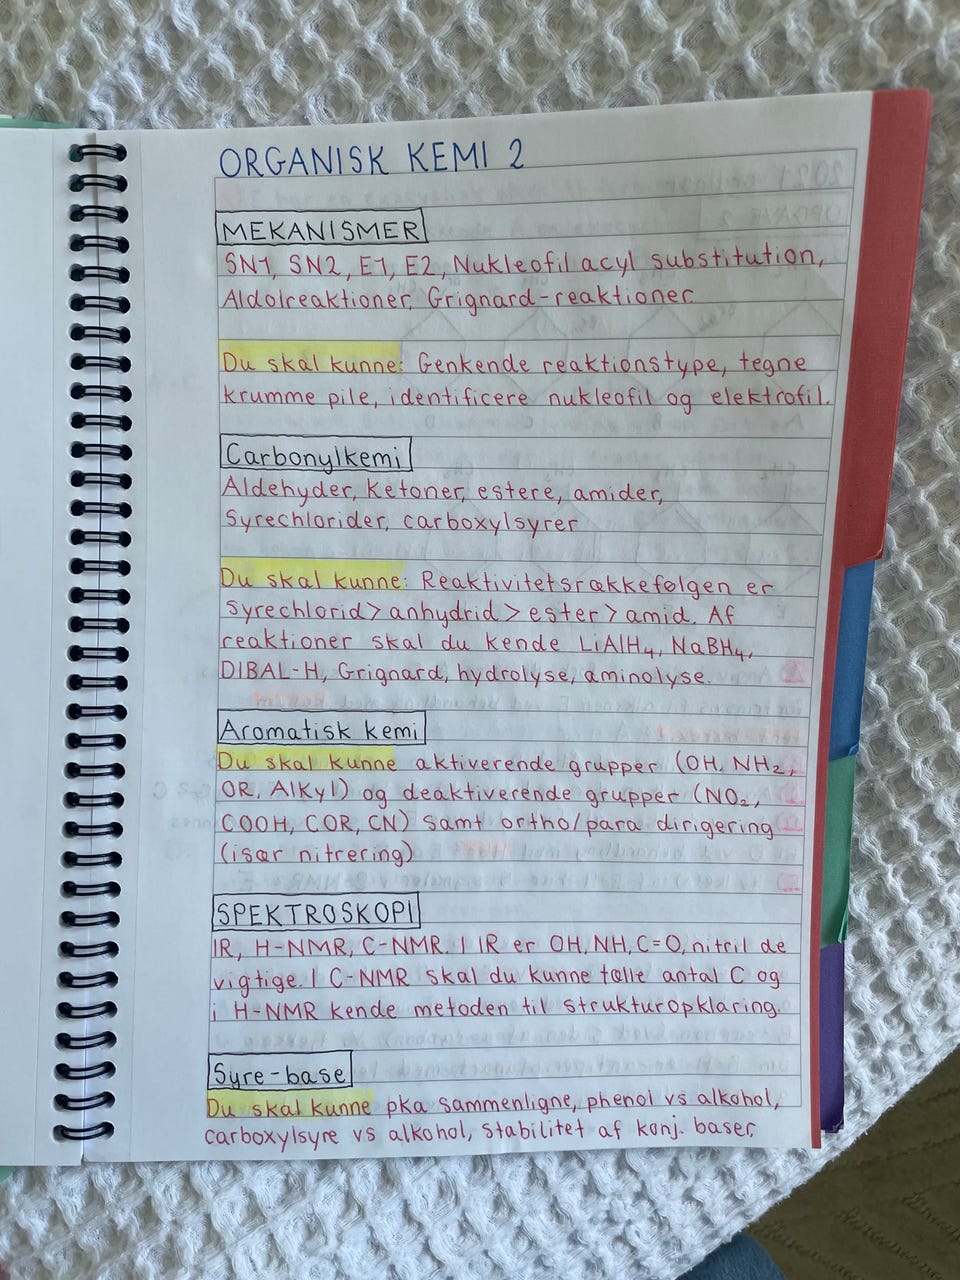 ORGANISK KEMI 2
MEKANISMER
SN1, SN2, E1, E2, Nukleofil acyl substitution,
Aldolreaktioner, Grignard-reaktioner
Du skal kunne: Genkende reaktionstype, tegne
krumme pile, identificere nukleofil og elektrofil.
Carbonylkemi
Aldehyder, Ketoner, estere, amider,
Syrechlorider, carboxylsyrer
Du skal kunne: Reaktivitetsrækkefølgen er
syrechlorid > anhydrid > ester > amid. Af
reaktioner skal du kende LiAlH₄, NaBH₄,
DIBAL-H, Grignard, hydrolyse, aminolyse.
Aromatisk kemi
Du skal kunne aktiverende grupper (OH, NH₂,
OR, Alkyl) og deaktiverende grupper (NO₂,
COOH, COR, CN) samt ortho/para dirigering
(især nitrering)
SPEKTROSKOPI
IR, H-NMR, C-NMR. I IR er OH, NH, C=O, nitril de
vigtige. I C-NMR skal du kunne tælle antal C og
i H-NMR kende metoden til strukturopklaring.
Syre-base
Du skal kunne pka sammenligne, phenol vs alkohol,
carboxylsyre vs alkohol, stabilitet af konj. baser,